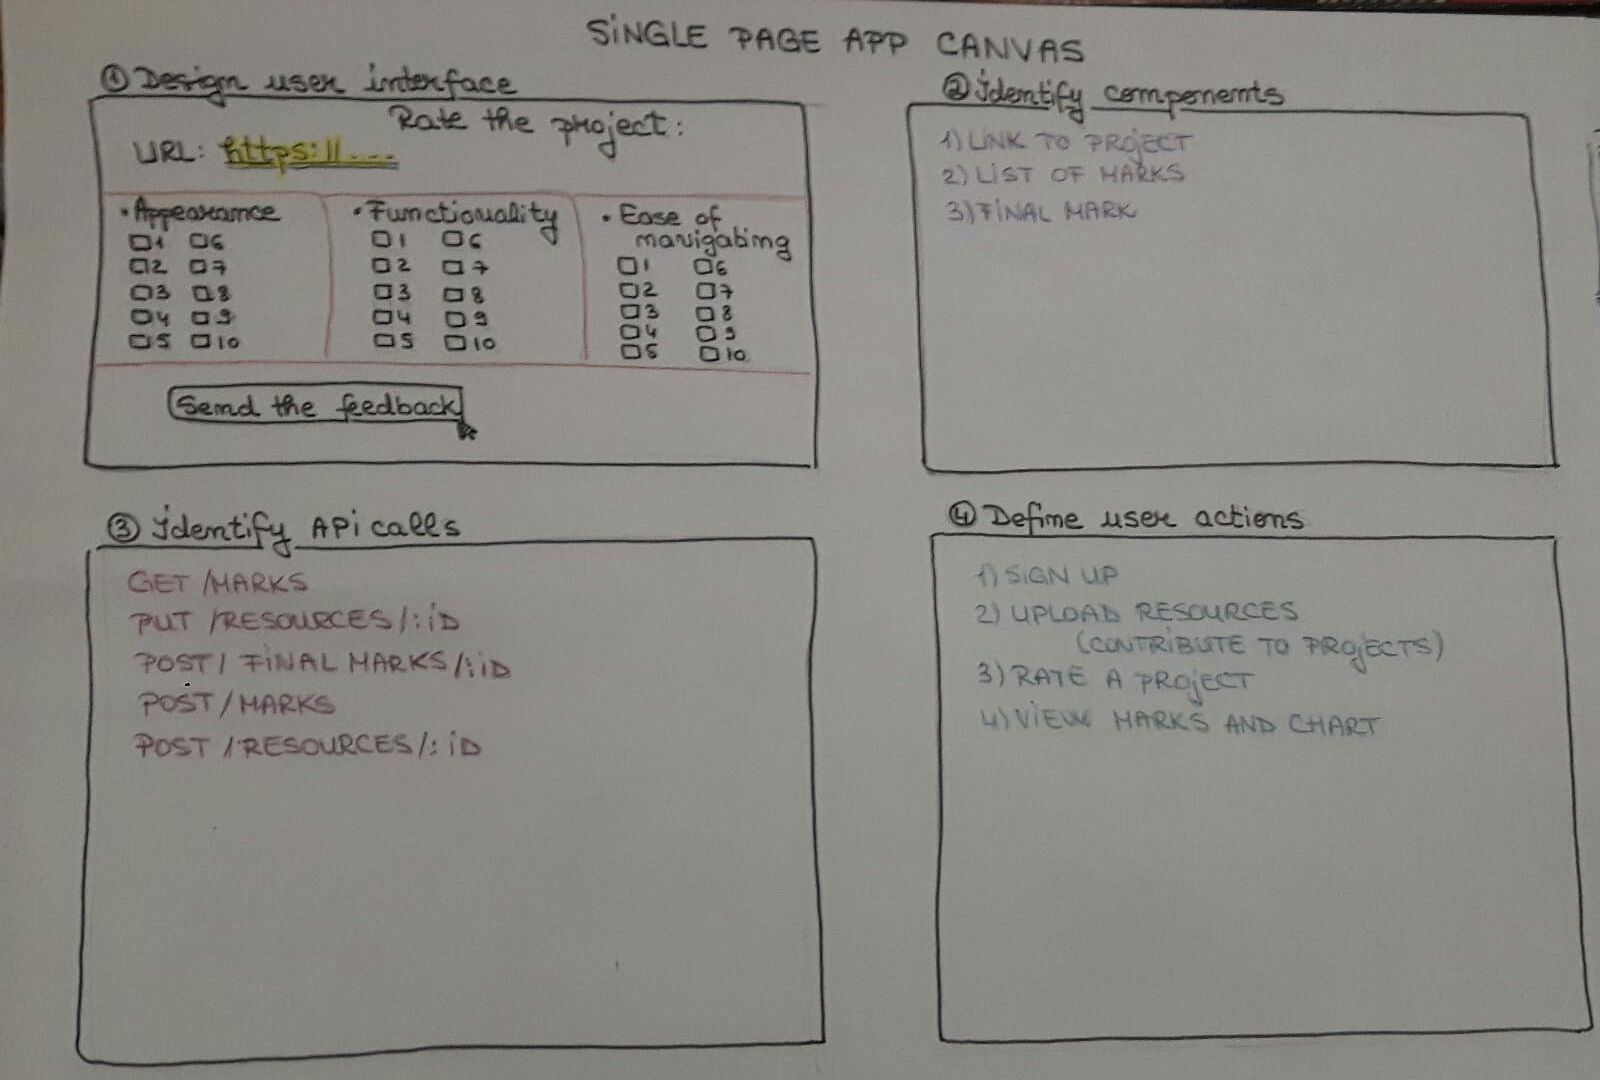 SINGLE PAGE APP CANVAS
① Design user interface
Rate the project:
URL: https://....
• Appearance
□1 □6
□2 □7
□3 □8
□4 □9
□5 □10
• Functionality
□1 □6
□2 □7
□3 □8
□4 □9
□5 □10
• Ease of
navigating
□1 □6
□2 □7
□3 □8
□4 □9
□5 □10
Send the feedback
② Identify components
1) LINK TO PROJECT
2) LIST OF MARKS
3) FINAL MARK
③ Identify API calls
GET /MARKS
PUT /RESOURCES/:ID
POST / FINAL MARKS/:ID
POST /MARKS
POST /RESOURCES/:ID
④ Define user actions
1) SIGN UP
2) UPLOAD RESOURCES
(CONTRIBUTE TO PROJECTS)
3) RATE A PROJECT
4) VIEW MARKS AND CHART